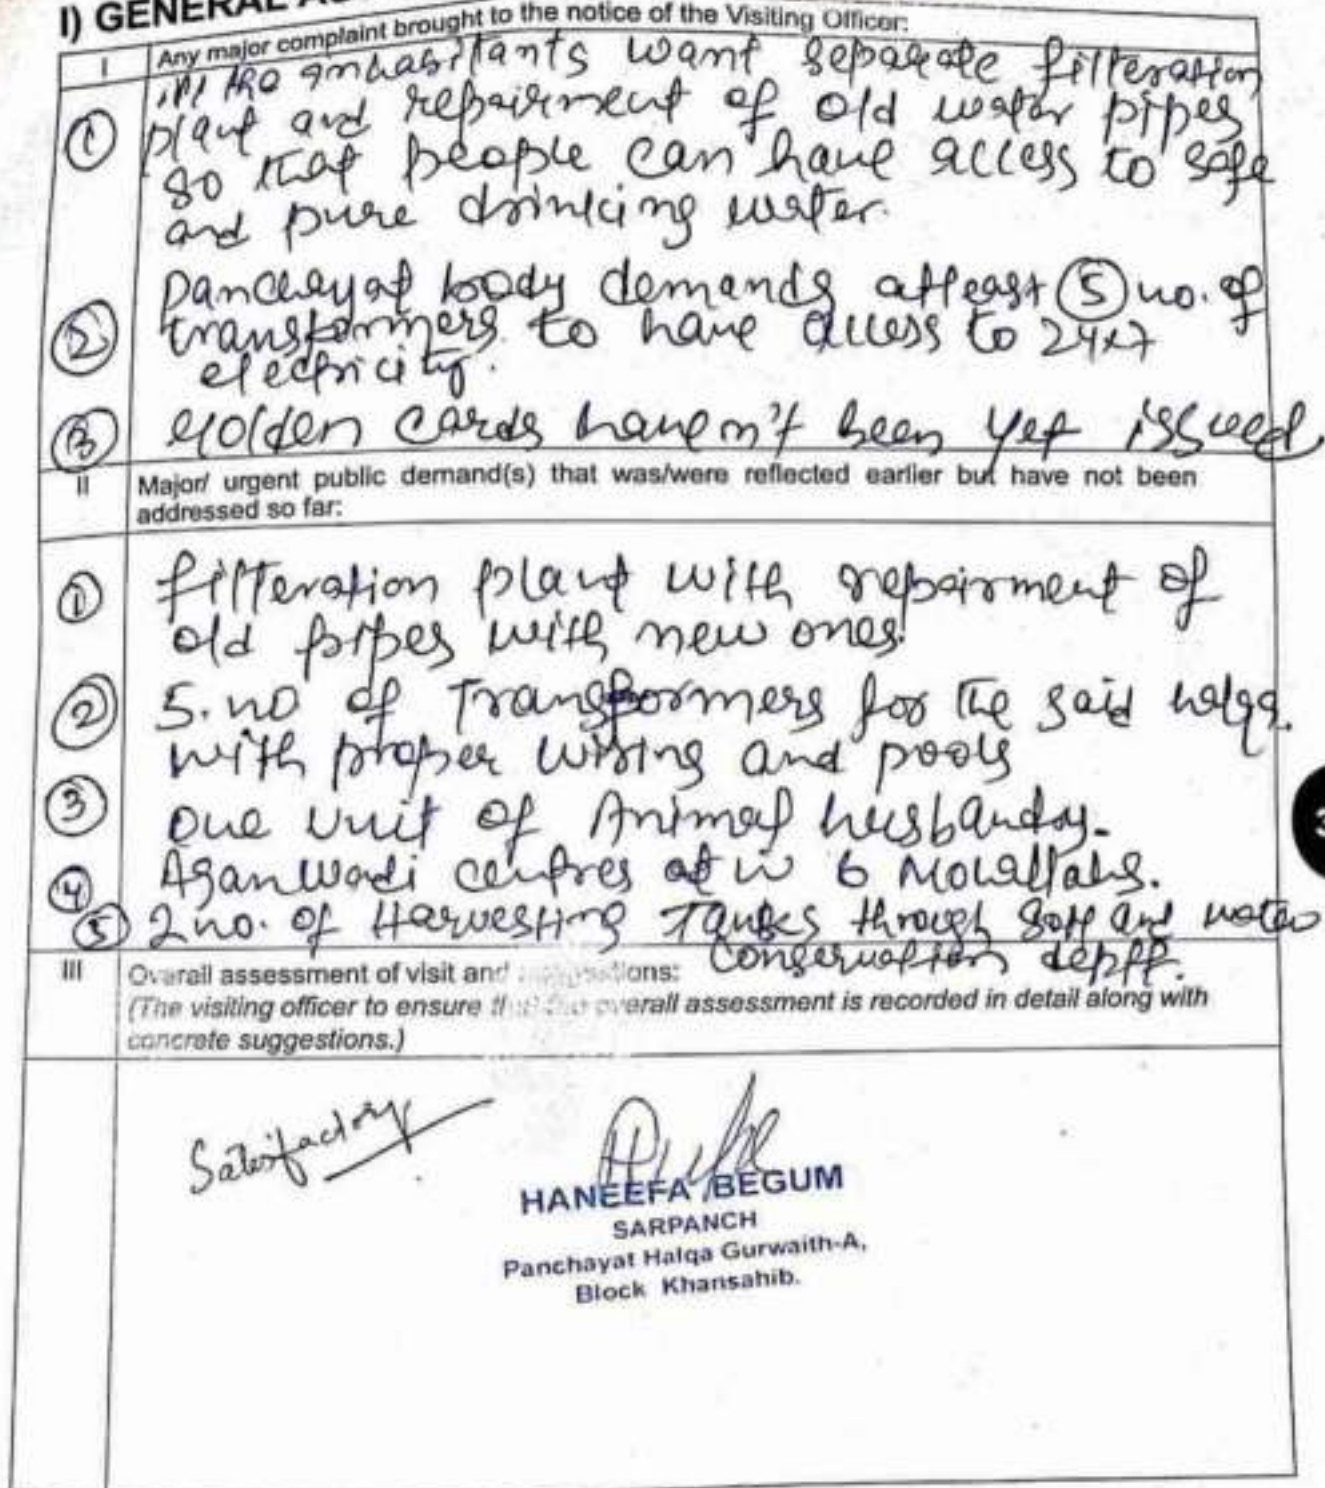 I) GENERAL
I Any major complaint brought to the notice of the Visiting Officer:
the inhabitants want separate filteration
① plant and repairment of old water pipes
so that people can have access to safe
and pure drinking water.
Panchayat body demands atleast ⑤ no. of
② transformers to have access to 24x7
electricity.
③ Golden cards haven't been yet issued.
II Major/ urgent public demand(s) that was/were reflected earlier but have not been
addressed so far:
① filteration plant with repairment of
old pipes with new ones.
② 5. no of Transformers for the said halqa.
with proper wiring and pools
③ One unit of Animal husbandry.
④ Aganwadi centres at 6 Mohallahs.
⑤ 2 no. of Harvesting Tanks through Soil and water
conservation deptt.
III Overall assessment of visit and
(The visiting officer to ensure overall assessment is recorded in detail along with
concrete suggestions.)
Satisfactory
HANEEFA BEGUM
SARPANCH
Panchayat Halqa Gurwaith-A,
Block Khansahib.
3